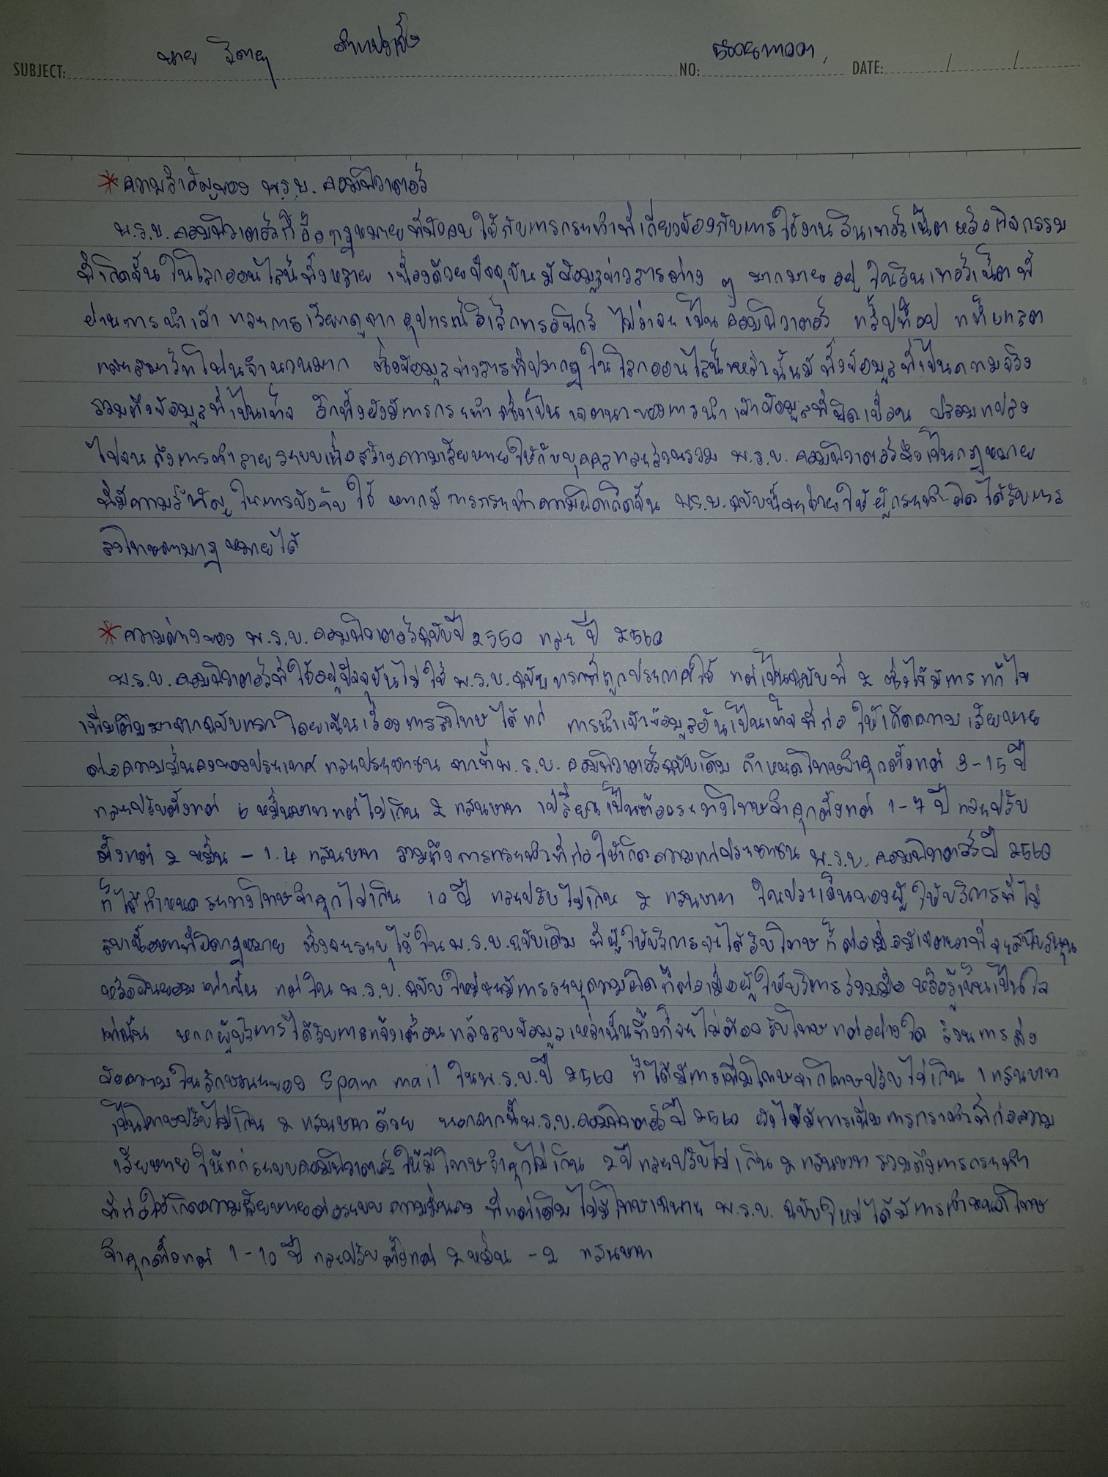 นาย
SUBJECT: NO: DATE: / /
*ความสำคัญของ พ.ร.บ. คอมพิวเตอร์
พ.ร.บ. คอมพิวเตอร์ก็คือกฎหมายที่มีผลบังคับใช้กับการกระทำที่เกี่ยวข้องกับการใช้งานอินเทอร์เน็ต หรือกิจกรรม
ที่เกิดขึ้นในโลกออนไลน์ทั้งหลาย เนื่องด้วยปัจจุบันมีข้อมูลข่าวสารต่าง ๆ มากมายอยู่ในอินเทอร์เน็ตที่
ผ่านการนำเข้า และการเรียกดูจากอุปกรณ์อิเล็กทรอนิกส์ ไม่ว่าจะเป็น คอมพิวเตอร์ แล็ปท็อป แท็บเลต
และสมาร์ทโฟนจำนวนมาก ซึ่งข้อมูลข่าวสารที่ปรากฏในโลกออนไลน์เหล่านั้นมีทั้งข้อมูลที่เป็นความจริง
รวมถึงข้อมูลที่เป็นเท็จ อีกทั้งยังมีการกระทำซึ่งเป็นเจตนาของการนำเข้าข้อมูลที่บิดเบือน ปลอมแปลง
ไปจนถึงการทำลายระบบเพื่อสร้างความเสียหายให้กับบุคคลและส่วนรวม พ.ร.บ. คอมพิวเตอร์จึงเป็นกฎหมาย
ที่มีความสำคัญในการบังคับใช้ หากมีการกระทำความผิดเกิดขึ้น พ.ร.บ.ฉบับนี้จะช่วยให้ผู้กระทำผิดได้รับการ
ลงโทษตามกฎหมายได้
*ความต่างของ พ.ร.บ. คอมพิวเตอร์ฉบับปี 2550 และปี 2560
พ.ร.บ. คอมพิวเตอร์ที่ใช้อยู่ปัจจุบันไม่ใช่ พ.ร.บ.ฉบับแรกที่ถูกประกาศใช้ แต่เป็นฉบับที่ 2 ซึ่งได้มีการแก้ไข
เพิ่มเติมมาจากฉบับแรก โดยเน้นเรื่องการลงโทษ ได้แก่ การนำเข้าข้อมูลอันเป็นเท็จที่ก่อให้เกิดความเสียหาย
ต่อความมั่นคงของประเทศ และประชาชน จากที่ พ.ร.บ. คอมพิวเตอร์ฉบับเดิม กำหนดโทษจำคุกตั้งแต่ 3-15 ปี
และปรับตั้งแต่ 6 หมื่นบาทแต่ไม่เกิน 2 แสนบาท เปลี่ยนเป็นต้องระวางโทษจำคุกตั้งแต่ 1-7 ปี และปรับ
ตั้งแต่ 2 หมื่น - 1.4 แสนบาท รวมถึงการกระทำที่ก่อให้เกิดความแก่ประชาชน พ.ร.บ. คอมพิวเตอร์ปี 2560
ก็ได้กำหนดระวางโทษจำคุกไม่เกิน 10 ปี และปรับไม่เกิน 2 แสนบาท ในประเด็นของผู้ให้บริการที่ไม่
ลบเนื้อหาที่ผิดกฎหมาย ซึ่งจะระบุไว้ใน พ.ร.บ.ฉบับเดิม ที่ผู้ให้บริการจะได้รับโทษ ก็ต่อเมื่อมีเจตนาที่จะสนับสนุน
หรือยินยอม เท่านั้น แต่ใน พ.ร.บ. ฉบับใหม่จะมีการระบุความผิดก็ต่อเมื่อผู้ให้บริการร่วมมือ หรือรู้เห็นเป็นใจ
เท่านั้น หากผู้บริการได้รับการแจ้งเตือนแล้วลบข้อมูลเหล่านั้นทิ้งก็จะไม่ต้องรับโทษแต่อย่างใด ส่วนการส่ง
ข้อความในลักษณะของ Spam mail ใน พ.ร.บ.ปี 2560 ก็ได้มีการเพิ่มโทษจากโทษปรับไม่เกิน 1 แสนบาท
เป็นโทษปรับไม่เกิน 2 แสนบาท ด้วย นอกจากนี้ พ.ร.บ.คอมพิวเตอร์ปี 2560 ยังได้มีการเพิ่มการกระทำที่ก่อความ
เสียหายให้แก่ระบบคอมพิวเตอร์ให้มีโทษจำคุกไม่เกิน 2 ปี และปรับไม่เกิน 2 แสนบาท รวมถึงการกระทำ
ที่ก่อให้เกิดความเสียหายต่อระบบความมั่นคง ที่แต่เดิมไม่มีโทษเฉพาะ พ.ร.บ. ฉบับใหม่ได้มีการกำหนดโทษ
จำคุกตั้งแต่ 1-10 ปี และปรับตั้งแต่ 2 หมื่น - 2 แสนบาท